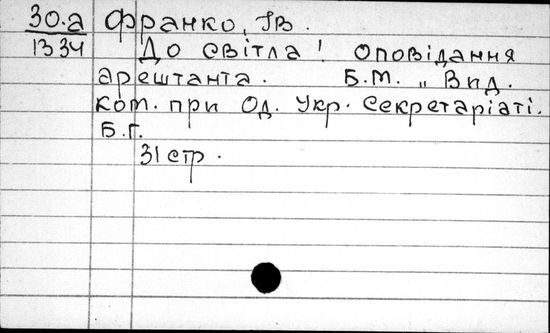 30.а Франко, Ів.
1334 До світла! Оповідання
арештанта. Б.М. „Вид.
Ком. при Од. Укр. Секретаріаті.
Б.Г.
31 стр.